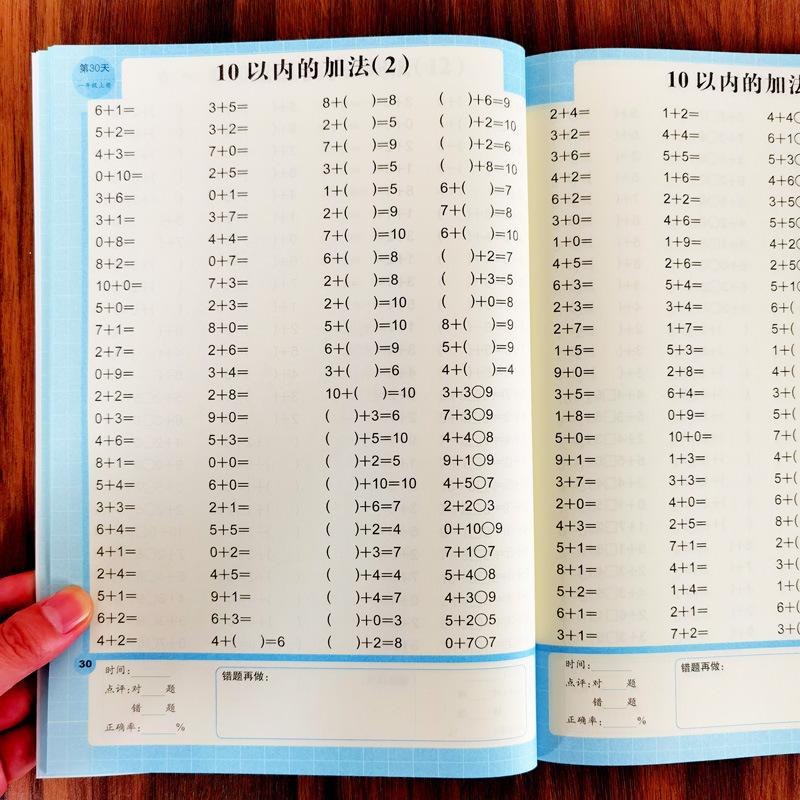 第30天
一年级上册
10以内的加法(2)
6+1= 3+5= 8+( )=8 ( )+6=9
5+2= 3+2= 2+( )=5 ( )+2=10
4+3= 7+0= 7+( )=9 ( )+2=6
0+10= 2+5= 3+( )=5 ( )+8=10
3+6= 0+1= 1+( )=5 6+( )=7
3+1= 3+7= 2+( )=9 7+( )=8
0+8= 4+4= 7+( )=10 6+( )=10
8+2= 0+7= 6+( )=8 ( )+2=7
10+0= 7+3= 2+( )=8 ( )+3=5
5+0= 2+3= 2+( )=10 ( )+0=8
7+1= 8+0= 5+( )=10 8+( )=9
2+7= 2+6= 6+( )=9 5+( )=9
0+9= 3+4= 3+( )=6 4+( )=4
2+2= 2+8= 10+( )=10 3+3○9
0+3= 9+0= ( )+3=6 7+3○9
4+6= 5+3= ( )+5=10 4+4○8
8+1= 0+0= ( )+2=5 9+1○9
5+4= 6+0= ( )+10=10 4+5○7
3+3= 2+1= ( )+6=7 2+2○3
6+4= 5+5= ( )+2=4 0+10○9
4+1= 0+2= ( )+3=7 7+1○7
2+4= 4+5= ( )+4=4 5+4○8
5+1= 9+1= ( )+4=7 4+3○9
6+2= 6+3= ( )+0=3 5+2○5
4+2= 4+( )=6 ( )+2=8 0+7○7
30
时间:
点评:对 题
错 题
正确率: %
错题再做:
10以内的加法
2+4= 1+2= 4+4○
3+2= 4+4= 6+1○
3+6= 5+5= 5+3○
4+2= 1+6= 4+6○
6+2= 2+2= 3+5○
3+0= 4+6= 5+5○
1+0= 1+9= 4+2○
4+5= 2+6= 2+5○
6+3= 5+4= 5+1○
2+3= 3+4= 6+(
2+7= 1+7= 5+(
1+5= 5+3= 1+(
9+0= 2+8= 4+(
3+5= 6+4= 3+(
1+8= 0+9= 5+(
5+0= 10+0= 7+(
9+1= 1+3= 4+(
3+7= 3+3= 5+(
2+0= 4+0= 6+(
4+3= 2+5= 8+(
5+1= 7+1= 2+(
8+1= 4+1= 3+(
5+2= 1+4= 1+(
6+1= 2+1= 6+(
3+1= 7+2= 3+(
时间:
点评:对 题
错 题
正确率: %
错题再做: